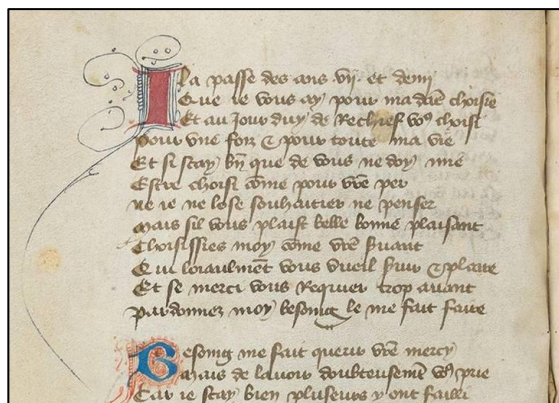 Il a passe des ans vij. et demi
Que ie vous ay pour ma dame choisie
Et au Jour duy de Rechief vous choisi
Pour vne foiz & pour toute ma vie
Et si scay bn que de vous ne doy mie
Estre choisi come pour vre per
ne ie ne lose souhaitier ne penser
mais sil vous plaist belle bonne plaisant
Choisissies moy come vre suant
Qui loiaulment vous vueil suir & plaire
Et se merci vous Requier trop auant
pardonnez moy besoing le me fait faire
Besoing me fait querir vre mercy
mais de lauoir doubteusemt vous prie
Car ie scay bien plusieurs y ont failli